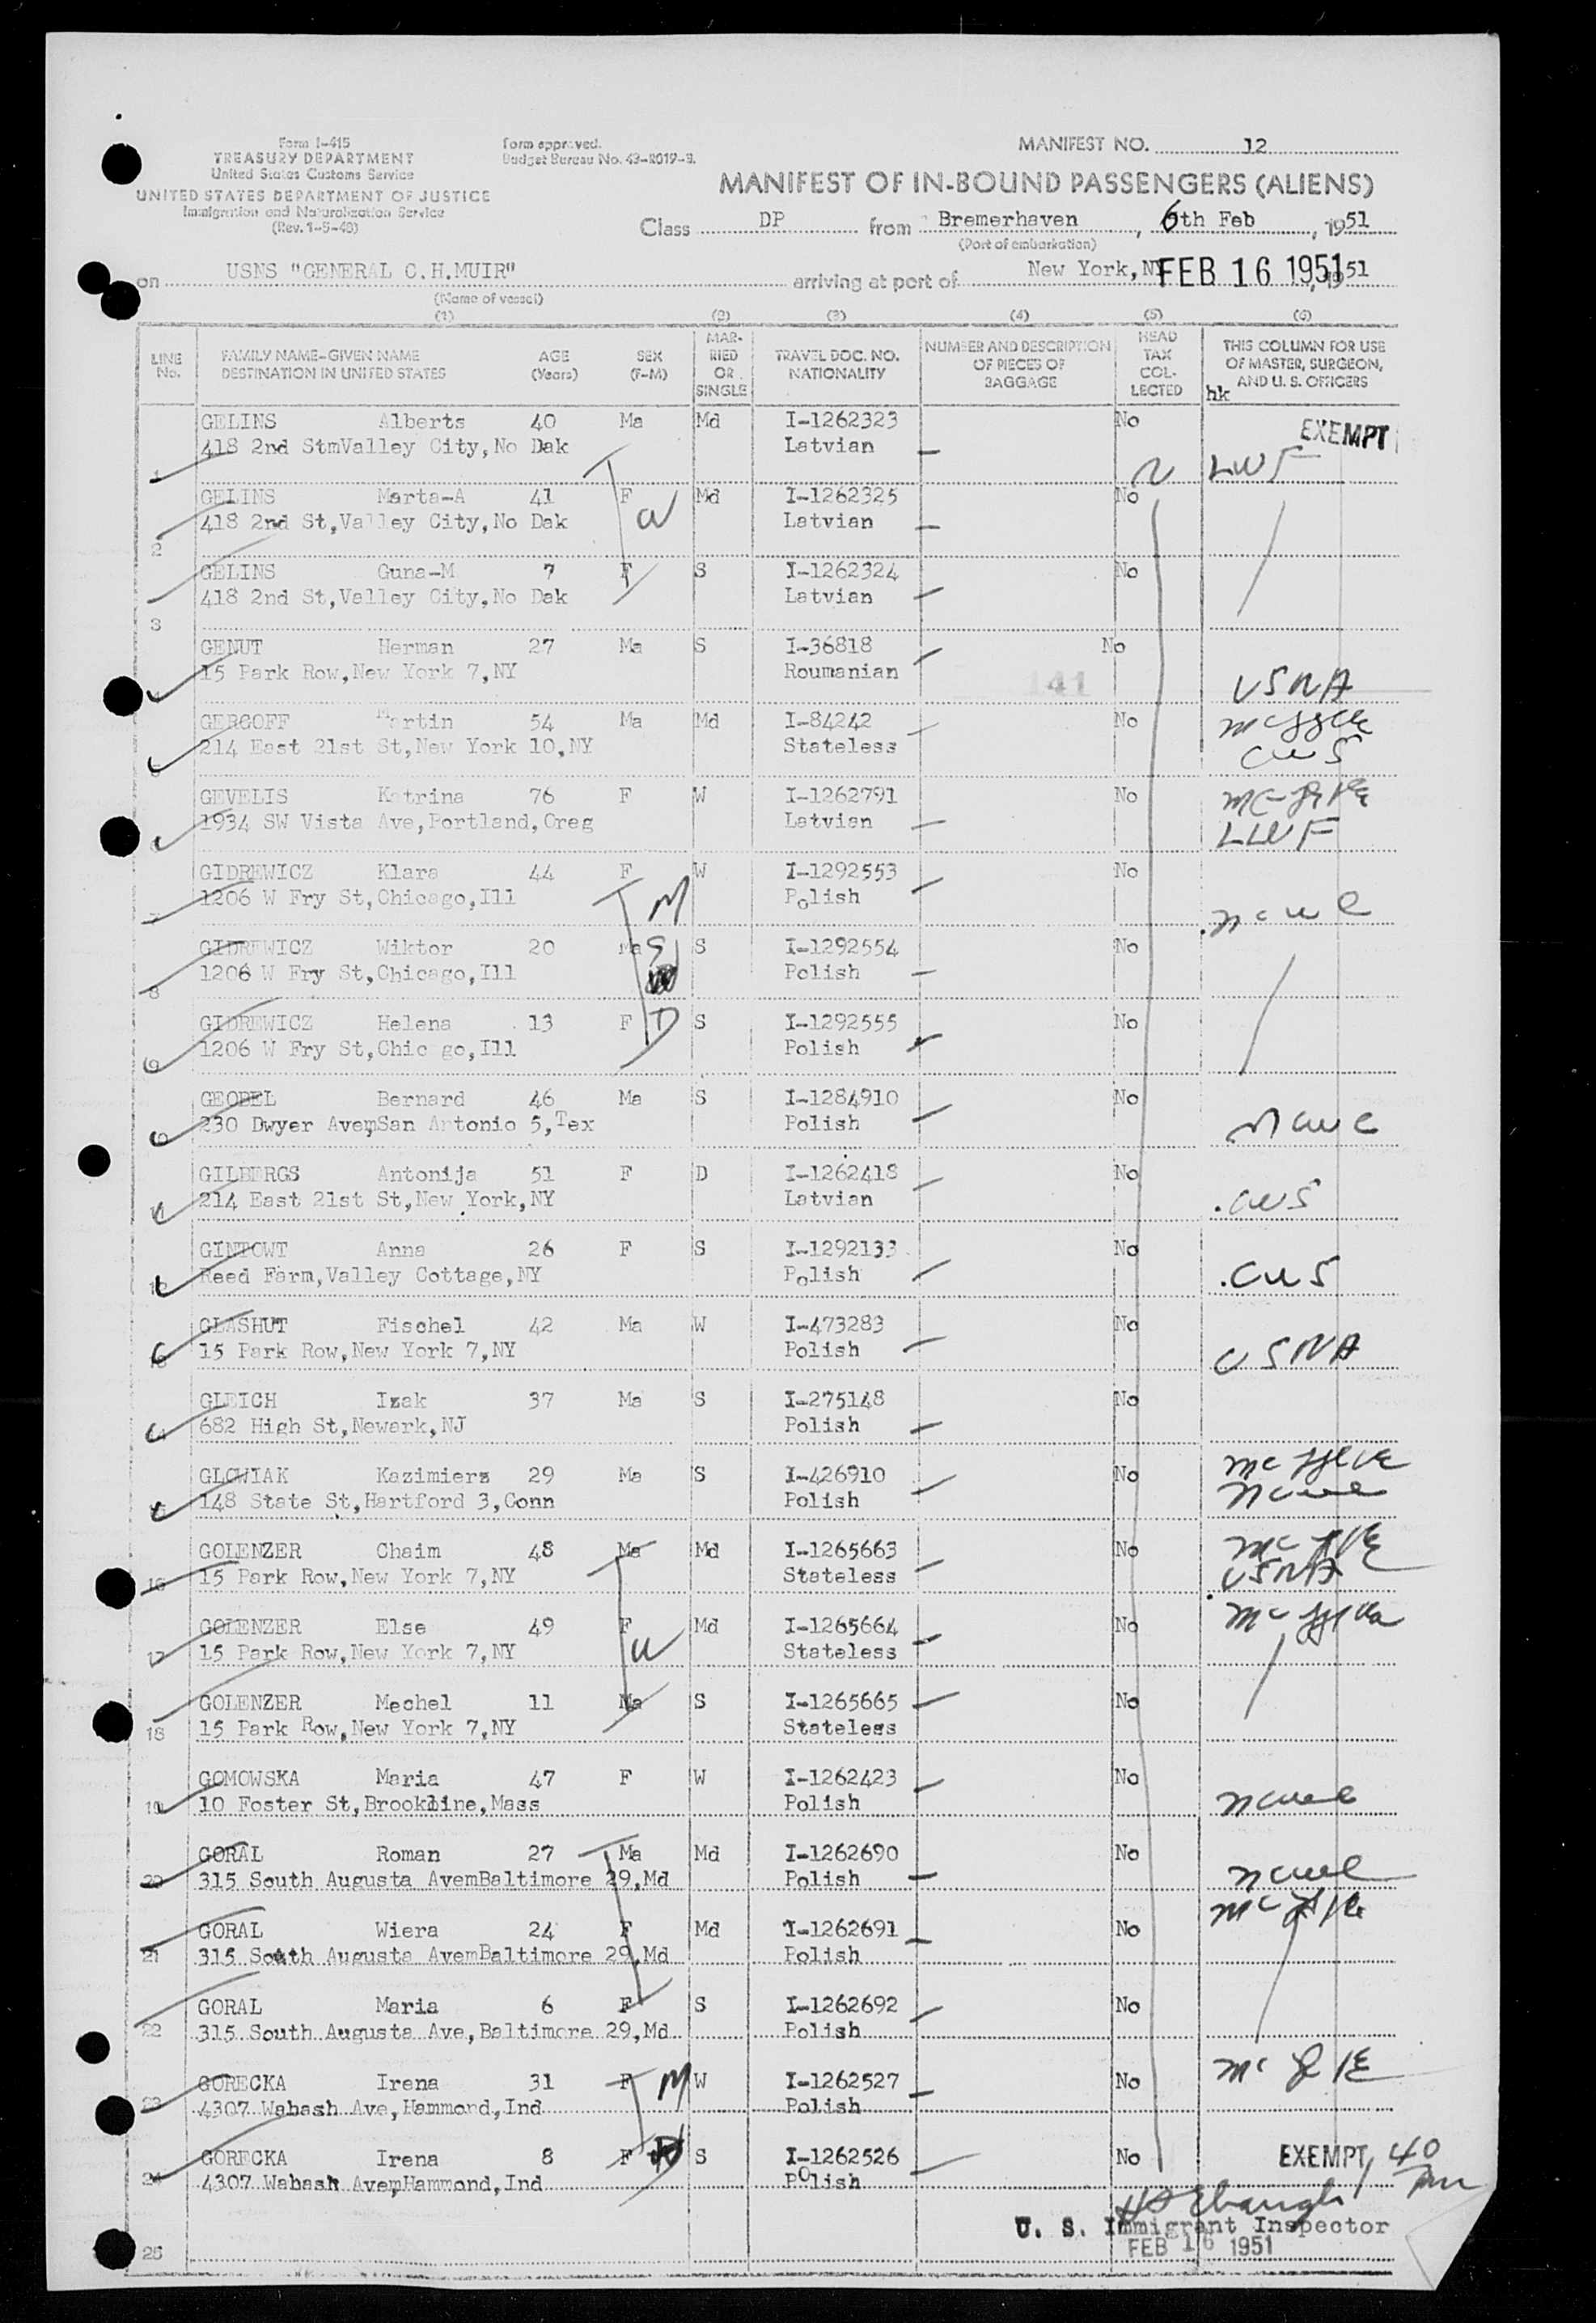 Form I-415
TREASURY DEPARTMENT
United States Customs Service
UNITED STATES DEPARTMENT OF JUSTICE
Immigration and Naturalization Service
(Rev. 1-5-48)
Form approved.
Budget Bureau No. 43-R019-3.
MANIFEST NO. 12
MANIFEST OF IN-BOUND PASSENGERS (ALIENS)
Class DP from Bremerhaven, 6th Feb, 1951
(Port of embarkation)
on USNS "GENERAL C.H.MUIR" arriving at port of New York, NY FEB 16 1951, 1951
(Name of vessel)
(1) (2) (3) (4) (5) (6)
LINE No. FAMILY NAME-GIVEN NAME DESTINATION IN UNITED STATES AGE (Years) SEX (F-M) MARRIED OR SINGLE TRAVEL DOC. NO. NATIONALITY NUMBER AND DESCRIPTION OF PIECES OF BAGGAGE HEAD TAX COLLECTED THIS COLUMN FOR USE OF MASTER, SURGEON, AND U. S. OFFICERS
hk
GELINS Alberts 40 Ma Md I-1262323 No EXEMPT
1 418 2nd StmValley City,No Dak Latvian LWF
GELINS Marta-A 41 F W Md I-1262325 No
2 418 2nd St,Valley City,No Dak Latvian
GELINS Guna-M 7 F S I-1262324 No
3 418 2nd St,Valley City,No Dak Latvian
GENUT Herman 27 Ma S I-36818 No
4 15 Park Row,New York 7,NY Roumanian 141 USNA
GERGOFF Martin 54 Ma Md I-84242 No
5 214 East 21st St,New York 10,NY Stateless CWS
GEVELIS Katrina 76 F W I-1262791 No
1934 SW Vista Ave,Portland,Oreg Latvian LWF
GIDREWICZ Klara 44 F M W I-1292553 No
7 1206 W Fry St,Chicago,Ill Polish ncwc
GIDREWICZ Wiktor 20 Ma S S I-1292554 No
8 1206 W Fry St,Chicago,Ill Polish
GIDREWICZ Helena 13 F D S I-1292555 No
9 1206 W Fry St,Chic go,Ill Polish
GEOBEL Bernard 46 Ma S I-1284910 No
10 230 Dwyer AvemSan Antonio 5,Tex Polish ncwc
GILBERGS Antonija 51 F D I-1262418 No
11 214 East 21st St,New York,NY Latvian CWS
GINTOWT Anna 26 F S I-1292133 No
12 Reed Farm,Valley Cottage,NY Polish CWS
GLASHUT Fischel 42 Ma W I-473283 No
13 15 Park Row,New York 7,NY Polish USNA
GLEICH Izak 37 Ma S I-275148 No
14 682 High St,Newark,NJ Polish
GLOWIAK Kazimierz 29 Ma S I-426910 No
15 148 State St,Hartford 3,Conn Polish ncwc
GOLENZER Chaim 48 Ma Md I-1265663 No
16 15 Park Row,New York 7,NY Stateless USNA
GOLENZER Else 49 F W Md I-1265664 No
17 15 Park Row,New York 7,NY Stateless
GOLENZER Mechel 11 Ma S I-1265665 No
18 15 Park Row,New York 7,NY Stateless
GOMOWSKA Maria 47 F W I-1262423 No
19 10 Foster St,Brookline,Mass Polish ncwc
GORAL Roman 27 Ma Md I-1262690 No
20 315 South Augusta AvemBaltimore 29,Md Polish ncwc
GORAL Wiera 24 F Md I-1262691 No
21 315 South Augusta AvemBaltimore 29,Md Polish
GORAL Maria 6 F S I-1262692 No
22 315 South Augusta Ave,Baltimore 29,Md Polish
GORECKA Irena 31 F M W I-1262527 No
23 4307 Wabash Ave,Hammond,Ind Polish
GORECKA Irena 8 F D S I-1262526 No EXEMPT 40
24 4307 Wabash AvemHammond,Ind Polish
U. S. Immigrant Inspector
25 FEB 16 1951